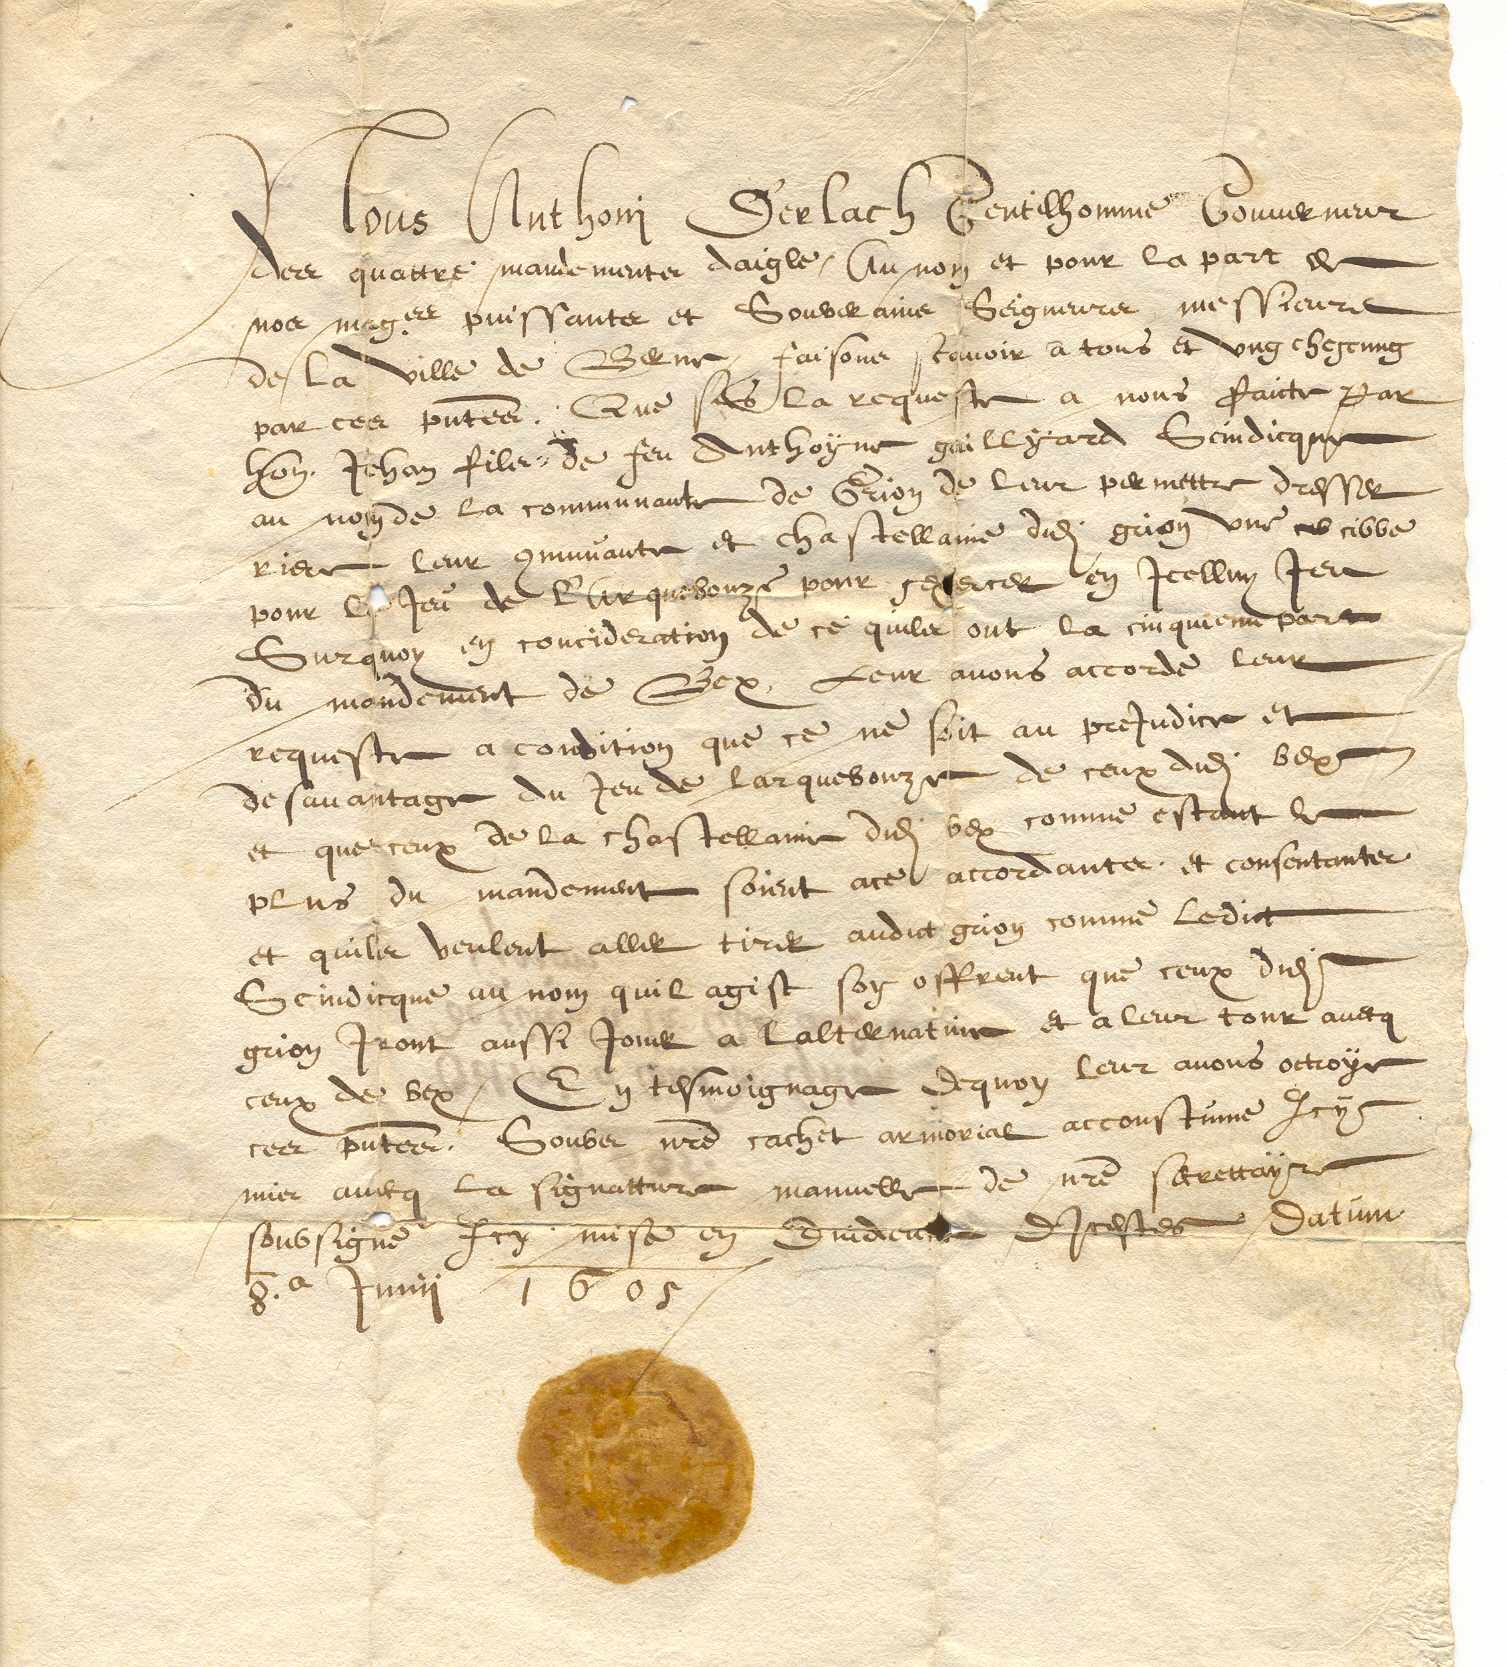 Nous Anthoni Gerlach Gentilhomme Gouverneur
des quattre mandementes daigle, Au nom et pour la part de
nos mag.es puissantes et Souveraines Seigneures messieurs
de la ville de Berne, faisons scavoir a tous et ung chescung
par ces pntes. Que sus la requeste a nous faicte par
hon. Jehan fils de feu Anthoyne gaillyard Scindicque
au nom de la communaute de Grion de leur permettre dresser
riere leur cmunaute et chastellanie dud. grion une cibbe
pour le Jeu de l'Arquebouze pour sexercer en Jcelluy Jeu
Surquoy en concideration de ce quiles ont la cinquieme part
du mandement de Bex, Leur avons accorde leur
requeste a condition que ce ne soit au preJudice et
desavantage du Jeu de larquebouze de ceux dud. bex
et que ceux de la chastellanie dud. bex comme estant le
plus du mandement soient ace accordantes et consentantes
et quiles veulent aller tirer audict grion comme ledict
Scindicque au nom quil agist soy offrent que ceux dud.
grion Jront aussi Jouer a lalternative et a leur tour avecq
ceux de bex, En tesmoignage dequoy leur avons octroye
ces pntes. Soubs nre cachet armorial accoustume Icy
mis avecq la signatture manuelle de nre secrettayre
soubsigne Icy mise en Dicestes Datum
8.a Junij 1605